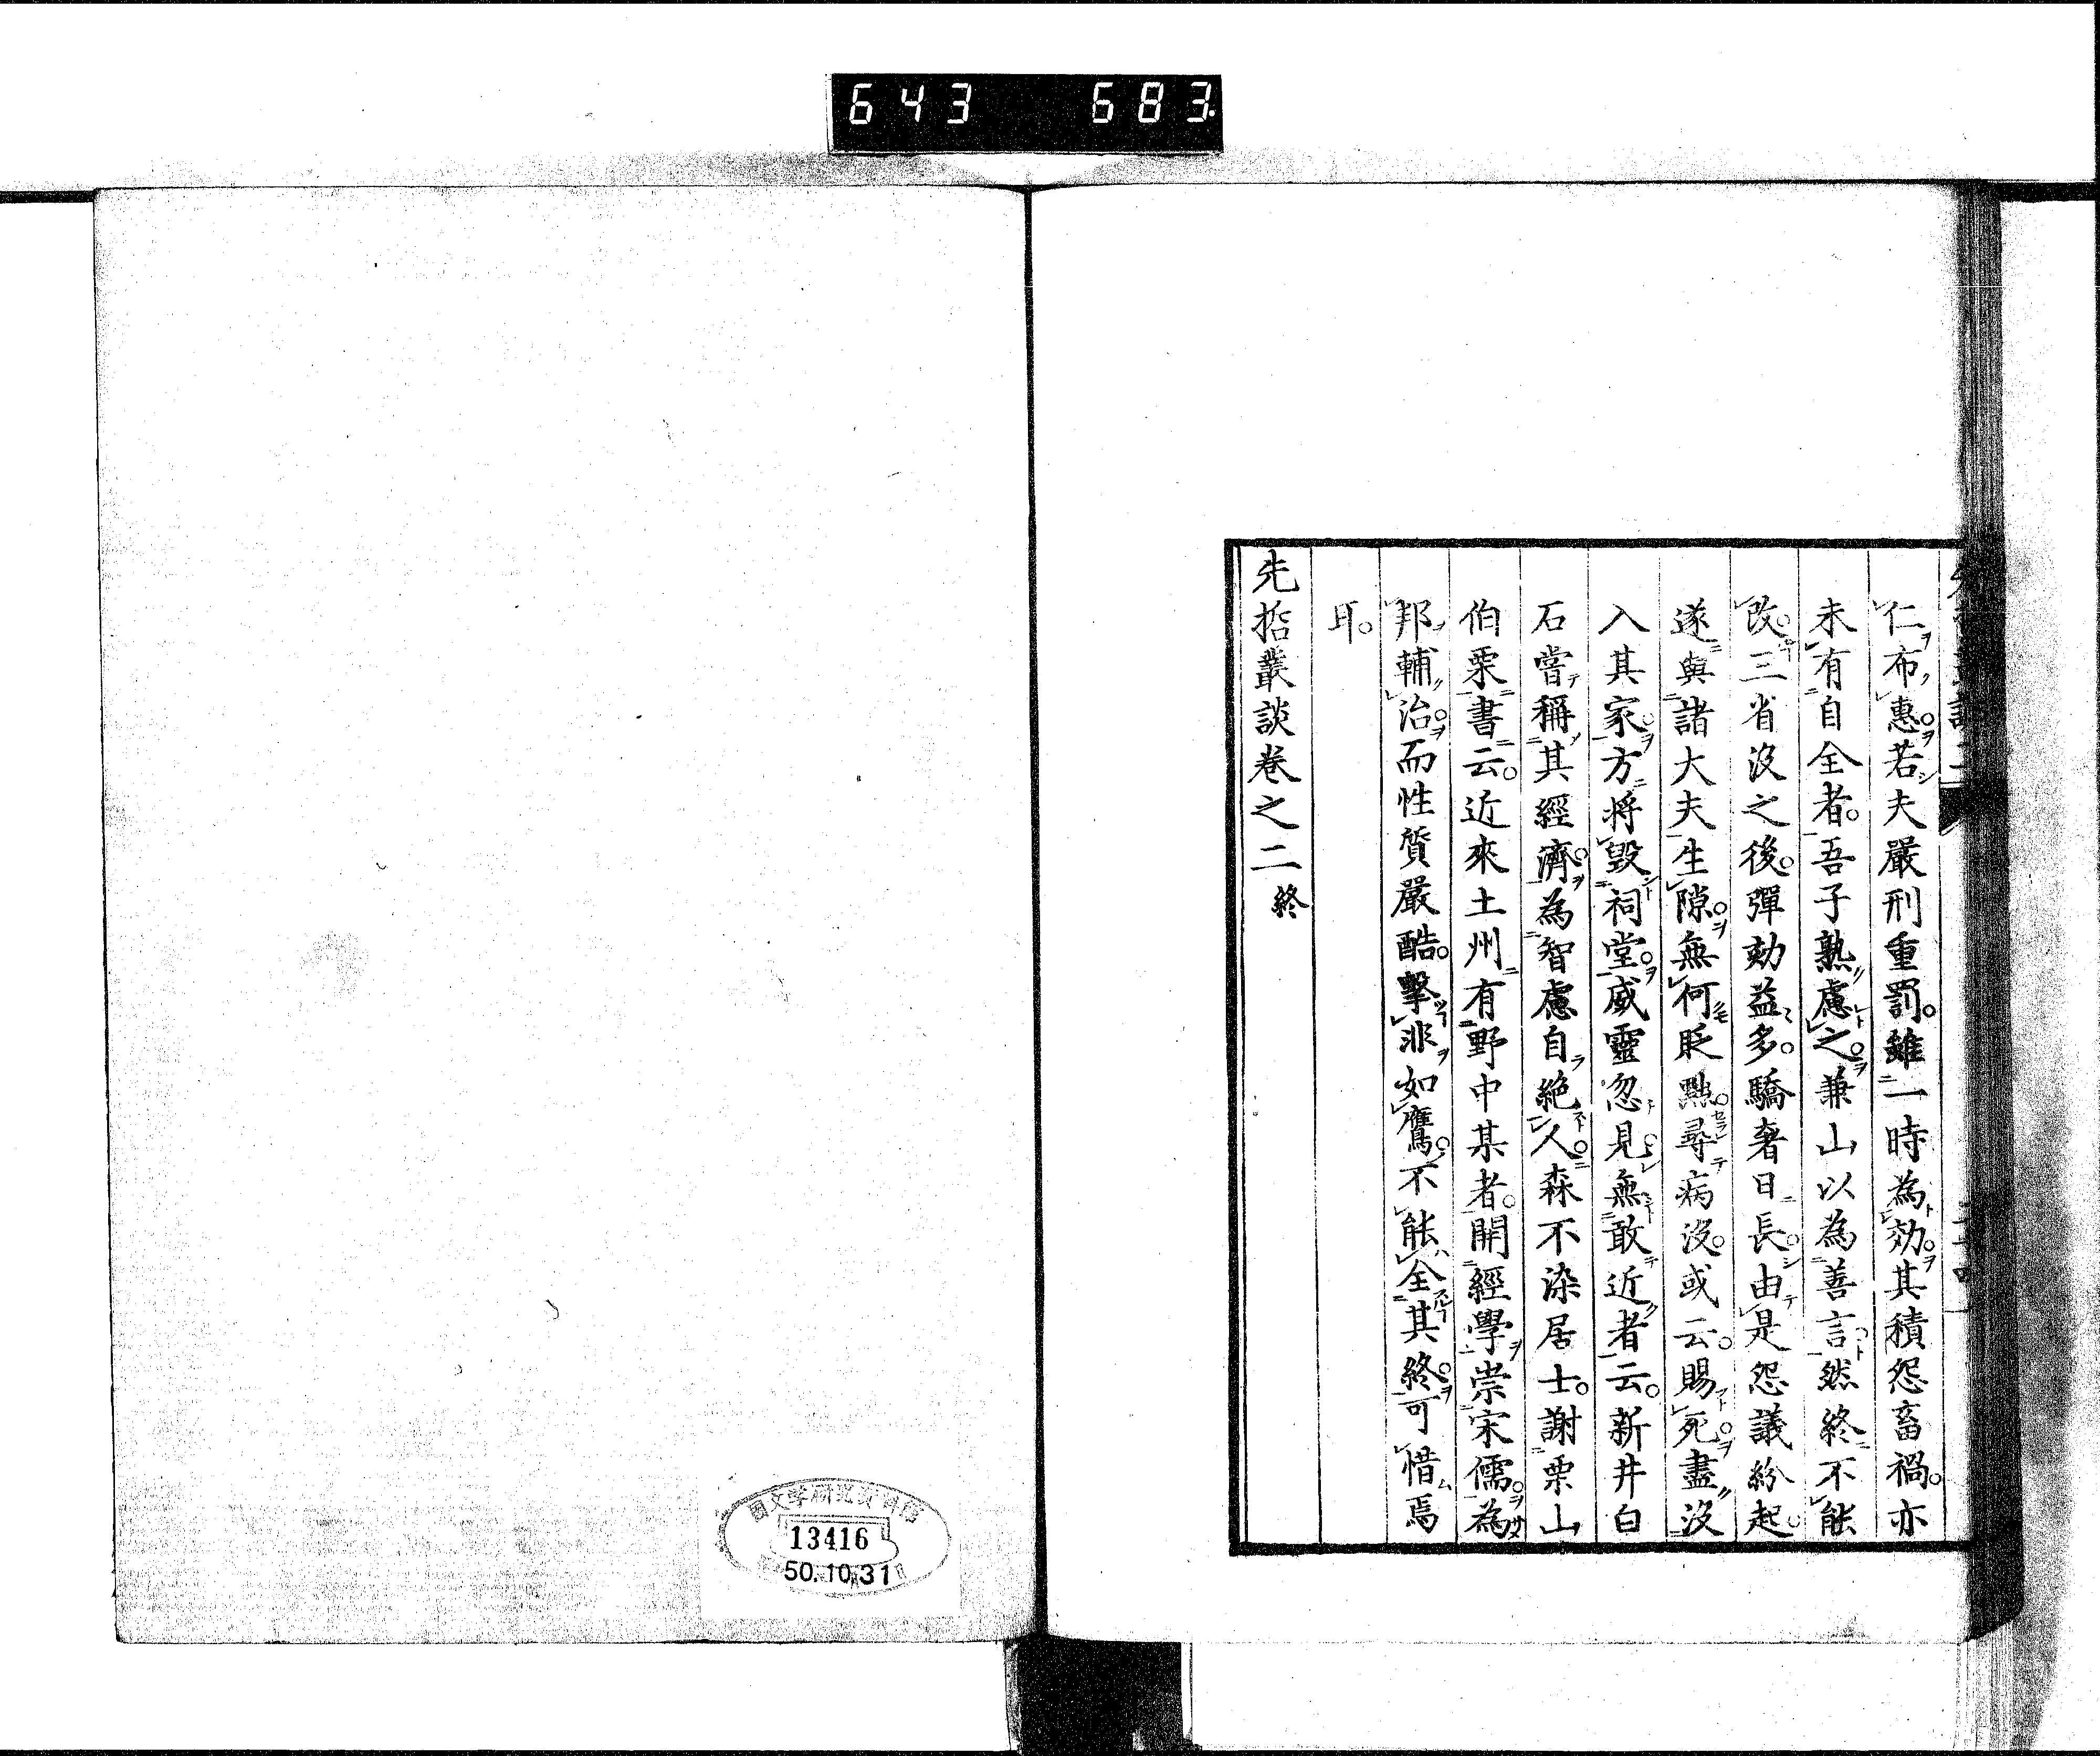 643 683.
仁布惠。若夫嚴刑重罰。雖一時為効。其積怨畜禍。亦
未有自全者。吾子熟慮之。兼山以為善言。然終不能
改。三省沒之後。彈劾益多。驕奢日長。由是怨議紛起。
遂與諸大夫生隙。無何貶黜。尋病沒。或云。賜死。盡沒
入其家。方將毀祠堂。威靈忽見。無敢近者云。新井白
石嘗稱其經濟。為智慮自絶人。森不染居士。謝栗山
伯栗書云。近來土州有野中某者。開經學崇宋儒。為
邦輔治。而性質嚴酷。擊非如鷹。不能全其終。可惜焉
耳。
先哲叢談卷之二終
國文学研究資料館
13416
50.10.31